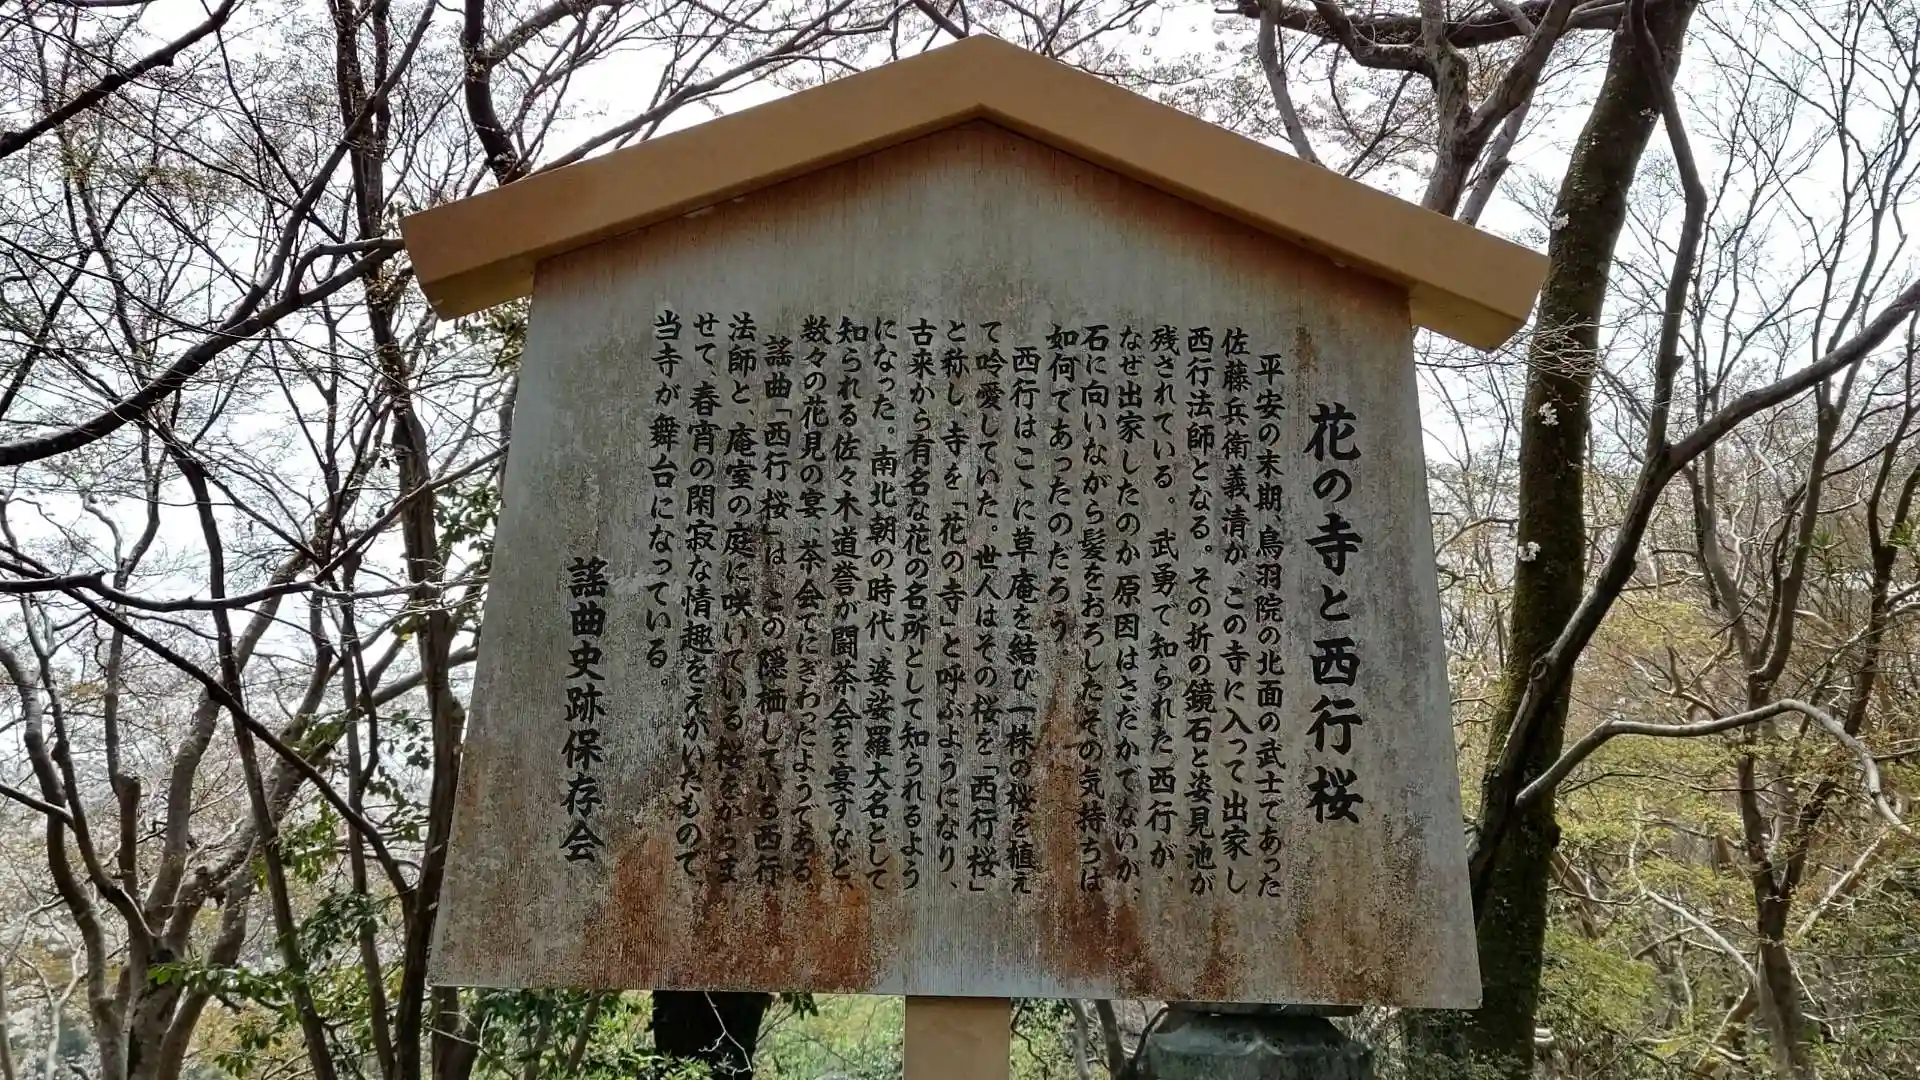 花の寺と西行桜
平安の末期、鳥羽院の北面の武士であった
佐藤兵衛義清が、この寺に入って出家し
西行法師となる。その折の鏡石と姿見池が
残されている。武勇で知られた西行が、
なぜ出家したのか原因はさだかでないが、
石に向いながら髪をおろしたその気持ちは
如何であったのだろう。
西行はここに草庵を結び、一株の桜を植え
て吟愛していた。世人はその桜を「西行桜」
と称し、寺を「花の寺」と呼ぶようになり、
古来から有名な花の名所として知られるよう
になった。南北朝の時代、婆娑羅大名として
知られる佐々木道誉が闘茶会を宴すなど、
数々の花見の宴、茶会でにぎわったようである。
謡曲「西行桜」は、この隠栖している西行
法師と、庵室の庭に咲いている桜をからま
せて、春宵の閑寂な情趣をえがいたもので、
当寺が舞台になっている。
謡曲史跡保存会